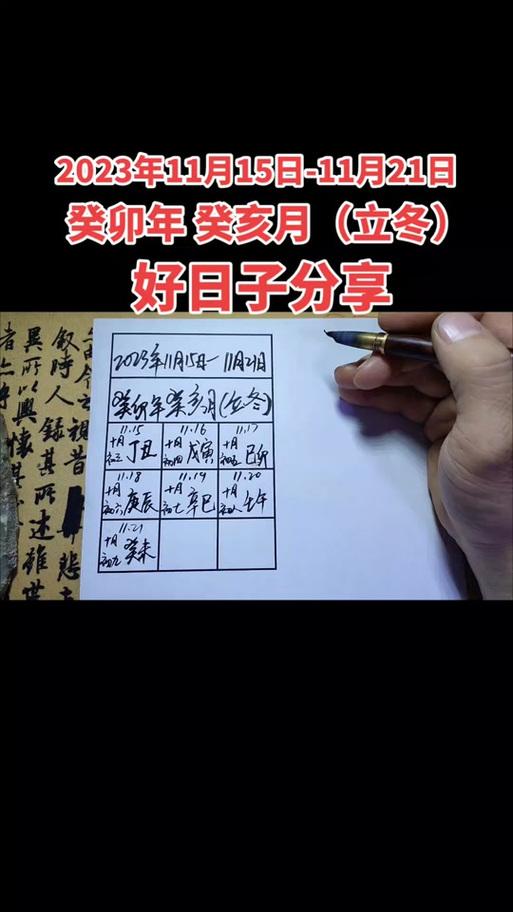 2023年11月15日-11月21日
癸卯年 癸亥月（立冬）
好日子分享
2023年11月15日-11月21日
癸卯年癸亥月(立冬)
11.15
十月
初三
丁丑
11.16
十月
初四
戊寅
11.17
十月
初五
己卯
11.18
十月
初六
庚辰
11.19
十月
初七
辛巳
11.20
十月
初八
壬午
11.21
十月
初九
癸未
叙時人録其所述雖世
異所以興懷其